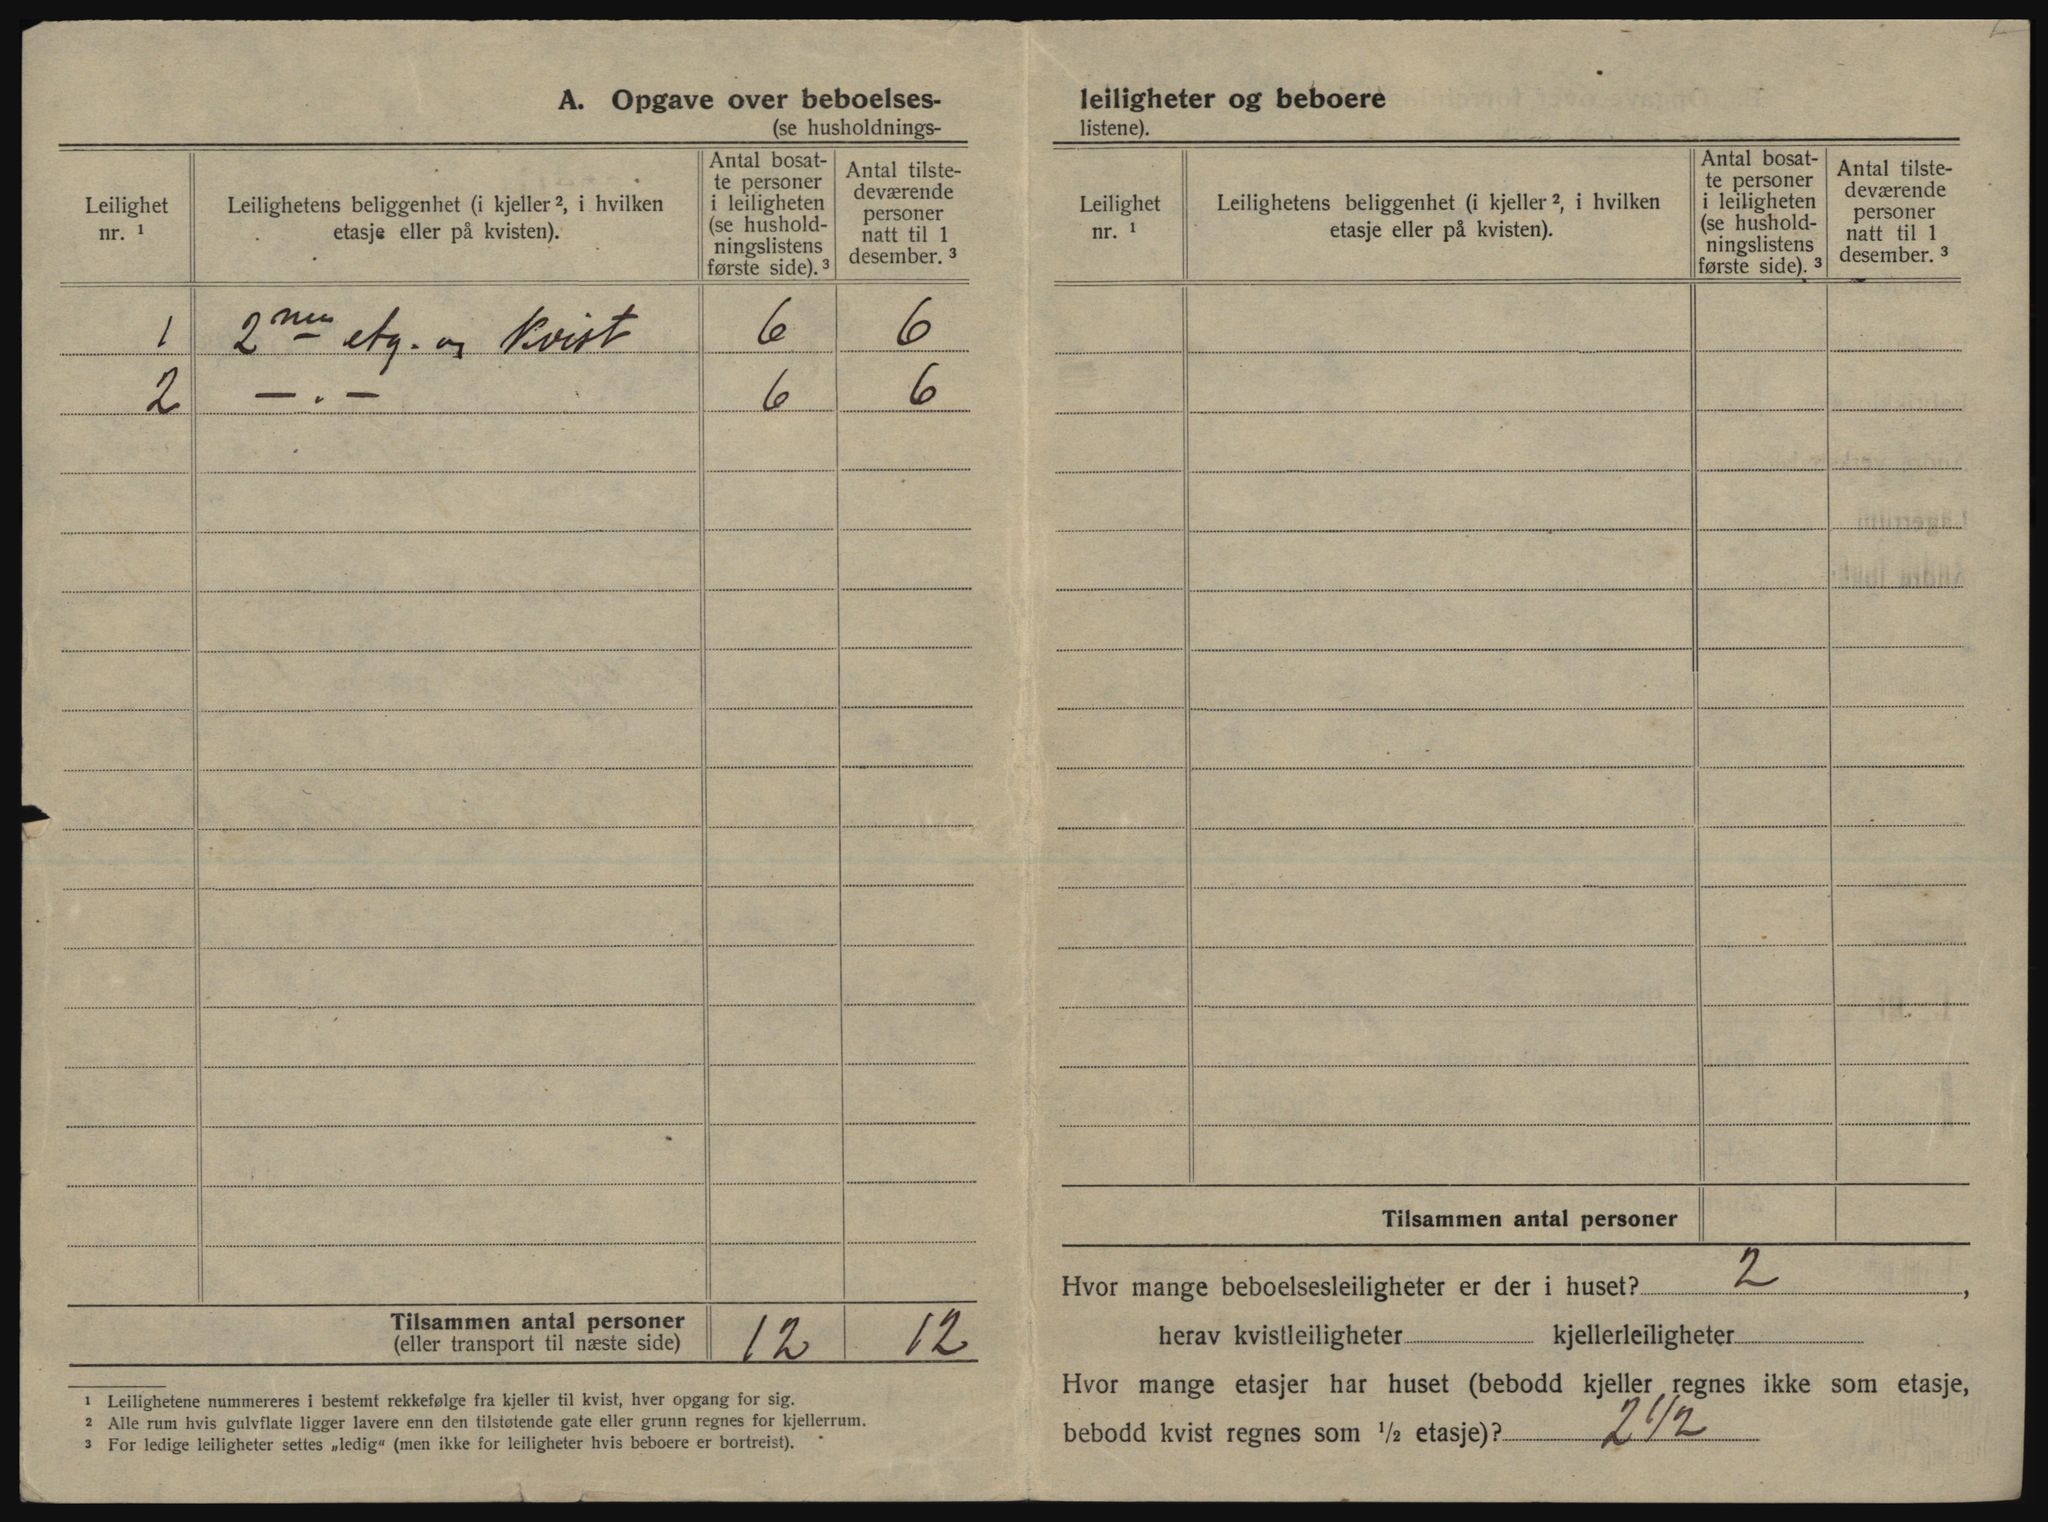 A. Opgave over beboelses-
(se husholdnings-
Leilighet
nr. ¹
Leilighetens beliggenhet (i kjeller ², i hvilken
etasje eller på kvisten).
Antal bosat-
te personer
i leiligheten
(se hushold-
ningslistens
første side). ³
Antal tilste-
deværende
personer
natt til 1
desember. ³
1 2nen etg. og Kvist 6 6
2 — . — 6 6
Tilsammen antal personer
(eller transport til næste side)
12 12
¹ Leilighetene nummereres i bestemt rekkefølge fra kjeller til kvist, hver opgang for sig.
² Alle rum hvis gulvflate ligger lavere enn den tilstøtende gate eller grunn regnes for kjellerrum.
³ For ledige leiligheter settes „ledig“ (men ikke for leiligheter hvis beboere er bortreist).
leiligheter og beboere
listene).
Leilighet
nr. ¹
Leilighetens beliggenhet (i kjeller ², i hvilken
etasje eller på kvisten).
Antal bosat-
te personer
i leiligheten
(se hushold-
ningslistens
første side). ³
Antal tilste-
deværende
personer
natt til 1
desember. ³
Tilsammen antal personer
Hvor mange beboelsesleiligheter er der i huset? 2,
herav kvistleiligheter kjellerleiligheter
Hvor mange etasjer har huset (bebodd kjeller regnes ikke som etasje,
bebodd kvist regnes som ½ etasje)? 2 1/2